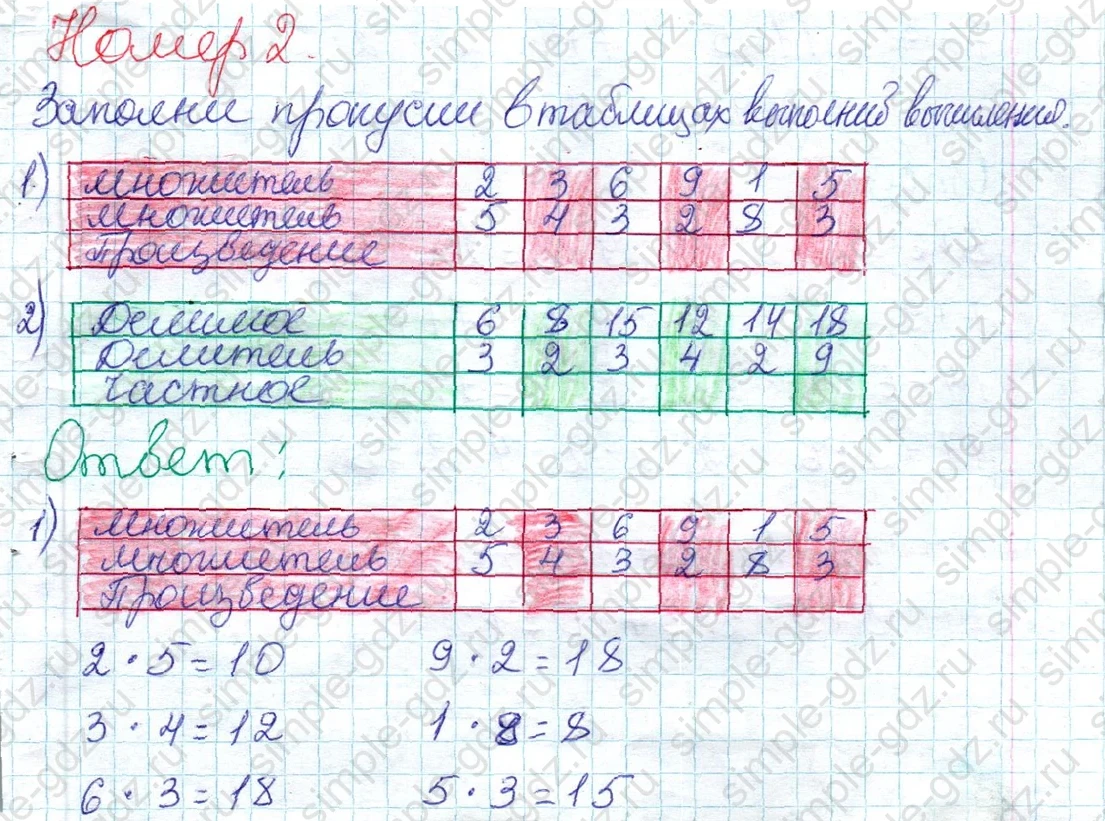 Номер 2.
Заполни пропуски в таблицах выполнив вычисления.
1) множитель 2 3 6 9 1 5
множитель 5 4 3 2 8 3
Произведение
2) Делимое 6 8 15 12 14 18
Делитель 3 2 3 4 2 9
Частное
Ответ:
1) множитель 2 3 6 9 1 5
множитель 5 4 3 2 8 3
Произведение
2 · 5 = 10 9 · 2 = 18
3 · 4 = 12 1 · 8 = 8
6 · 3 = 18 5 · 3 = 15
simple-gdz.ru